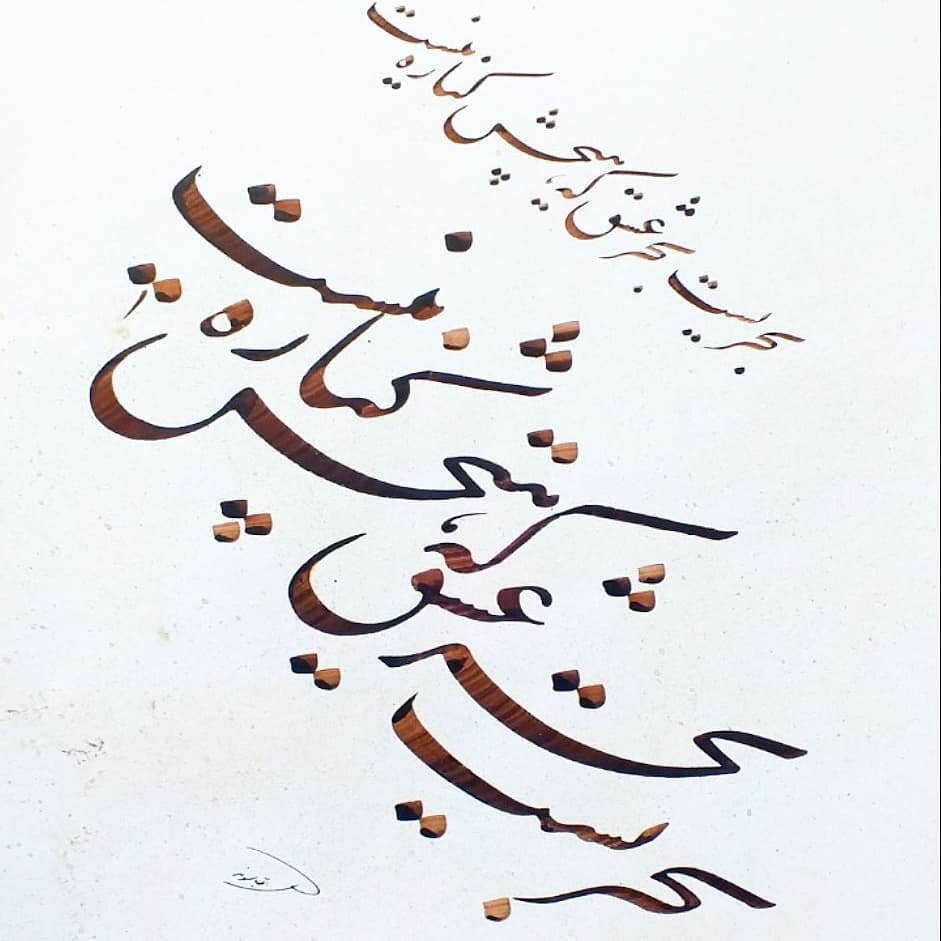 بحریست بحر عشق که هیچش کناره نیست
بحریست بحر عشق که هیچش کناره نیست